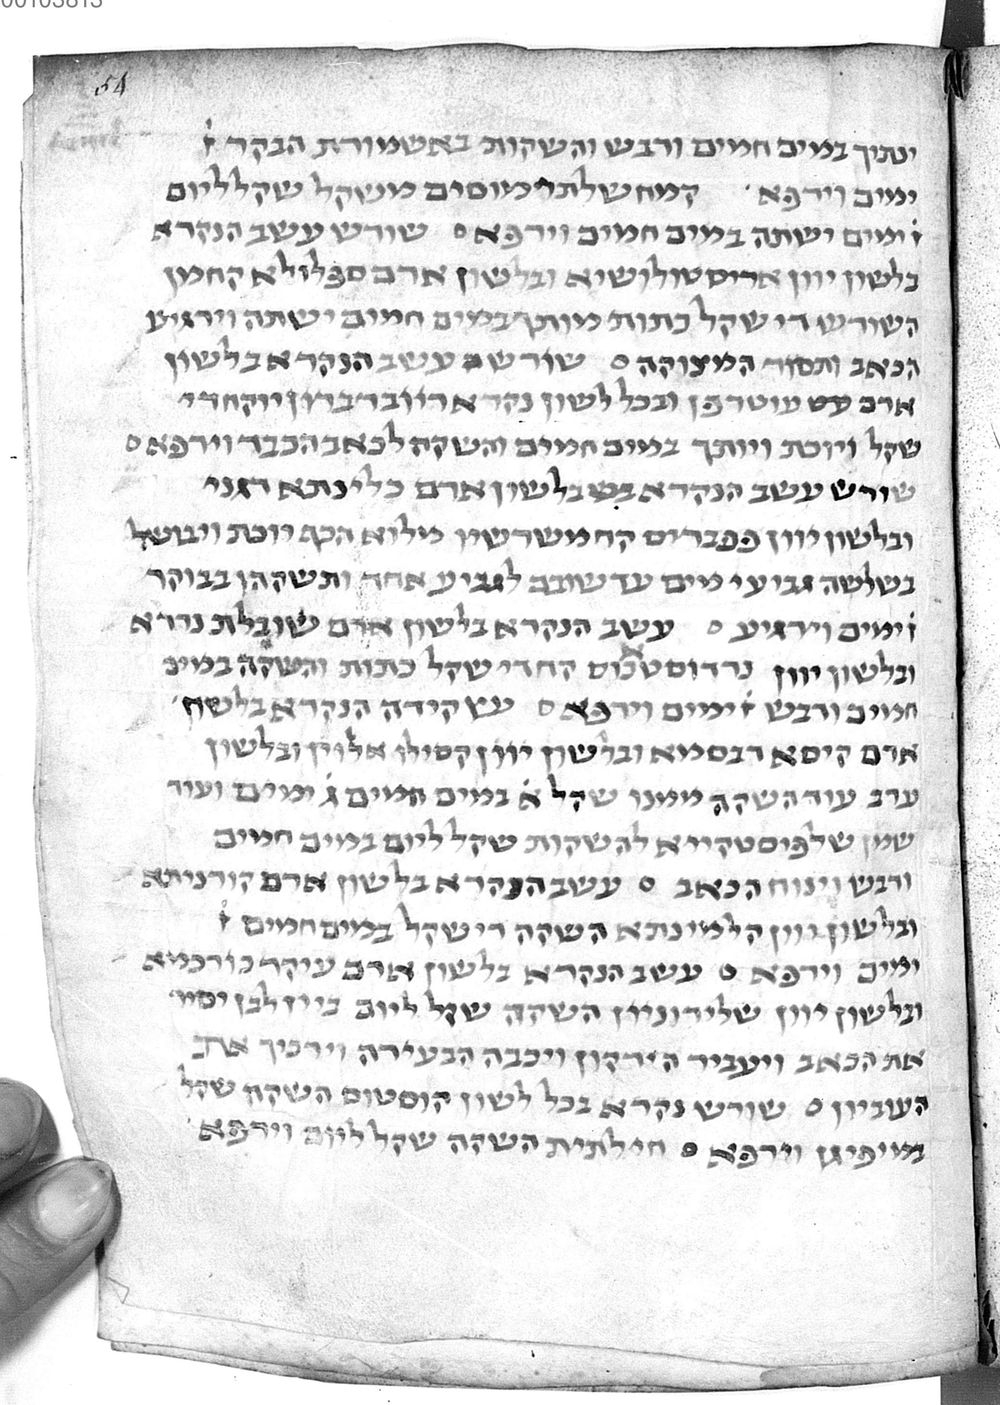 00103813
54
ינתוך במים חמים ודבש והשקות באשמורת הבקר ז̇
ימים וירפא׳ קמח של תורמוסים משקל שקל ליום
ז̇ ימים ישתה במים חמים וירפא ס שורש עשב הנקרא
בלשון יוון ארוסטולושיא ובלשון ארם ספלולא קח מן
השורש די שקל כתות מותך במים חמים ישתה וירגיע
הכאב ותסור המצוקה ס שורש עשב הנקרא בלשון
ארם עוטרפן ובכל לשון נקרא ריוברברון יוקח די
שקל ויוכת ויותך במים חמים והשקה לכאב הכבד וירפא ס
שורש עשב הנקרא בלשון ארם כלינתא דגני
ובלשון יוון פפבריס קח משרשיו מילוא הכף יוכת ויבושל
בשלשה גביעי מים עד שובם לגביע אחד ותשקהו בבוקר
ז̇ ימים וירגיע ס עשב הנקרא בלשון ארם שובלת נרדא
ובלשון יוון נרדוסטכוס קח די שקל כתות והשקה במים
חמים ודבש ז̇ ימים וירפא ס עץ קידה הנקרא בלשון
ארם קיסא דבסמא ובלשון יוון קסילו אלוין ובלשון
ערב עוד השקה ממנו שקל א̇ במים חמים ג̇ ימים ועוד
שמן של פיסטקייא להשקות שקל ליום במים חמים
ודבש וינוח הכאב ס עשב הנקרא בלשון ארם קורניתא
ובלשון יוון קלמינתא השקה די שקל במים חמים ז̇
ימים וירפא ס עשב הנקרא בלשון ארם עיקר כורכמא
ובלשון יוון שלידוניון השקה שקל ליום ביין לבן יסיר
את הכאב ויעביר הירקון ויכבה הבעירה וירכיך את
העוביון ס שורש נקרא בכל לשון קוסטוס השקה שקל
במי פיגן וירפא ס חילתית השקה שקל ליום וירפא